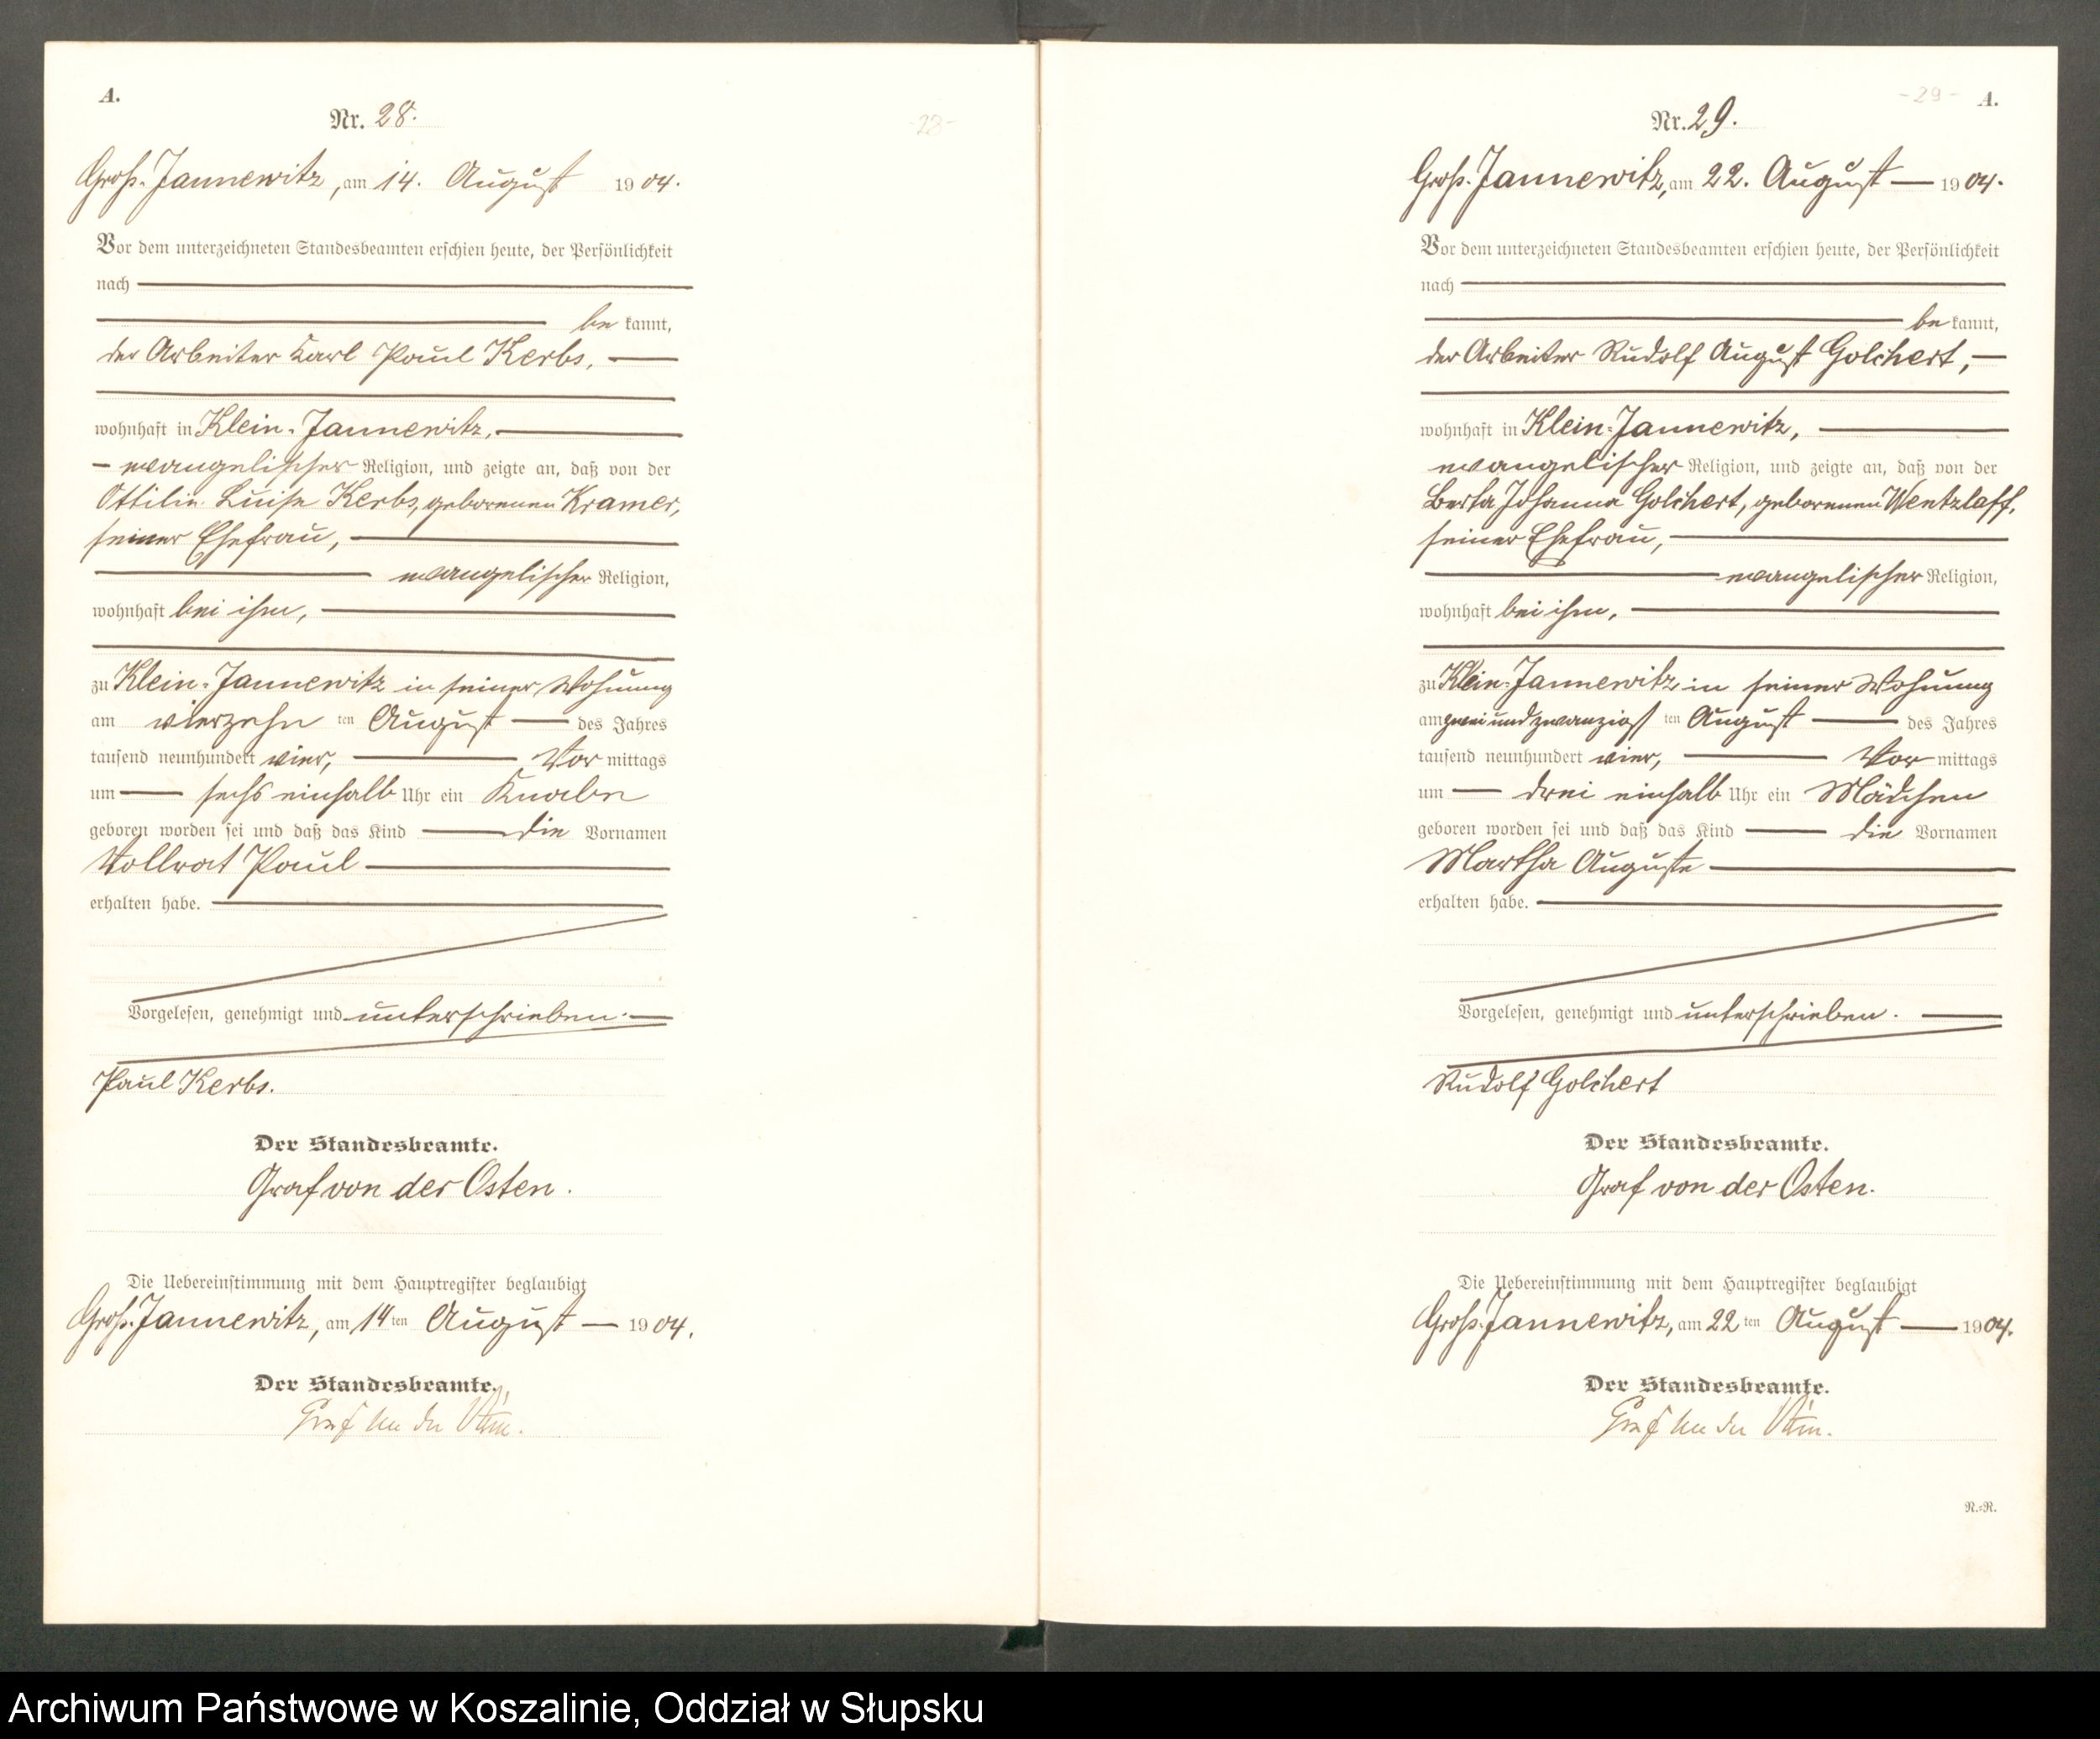 A.
Nr. 28.
-28-
Groß-Jannewitz, am 14. August 1904.
Vor dem unterzeichneten Standesbeamten erschien heute, der Persönlichkeit
nach
be kannt,
der Arbeiter Karl Paul Kerbs,
wohnhaft in Klein-Jannewitz,
evangelischer Religion, und zeigte an, daß von der
Ottilie Luise Kerbs, geborenen Kramer,
seiner Ehefrau,
evangelischer Religion,
wohnhaft bei ihm,
zu Klein-Jannewitz in seiner Wohnung
am vierzehn ten August des Jahres
tausend neunhundert vier, Vor mittags
um sechs einhalb Uhr ein Knabe
geboren worden sei und daß das Kind die Vornamen
Vollrat Paul
erhalten habe.
Vorgelesen, genehmigt und unterschrieben.
Paul Kerbs.
Der Standesbeamte.
Graf von der Osten.
Die Uebereinstimmung mit dem Hauptregister beglaubigt
Groß-Jannewitz, am 14ten August 1904.
Der Standesbeamte.
Graf von der Osten.
-29- A.
Nr. 29.
Groß-Jannewitz, am 22. August 1904.
Vor dem unterzeichneten Standesbeamten erschien heute, der Persönlichkeit
nach
be kannt,
der Arbeiter Rudolf August Golchert,
wohnhaft in Klein-Jannewitz,
evangelischer Religion, und zeigte an, daß von der
Berta Johanna Golchert, geborenen Wentzlaff,
seiner Ehefrau,
evangelischer Religion,
wohnhaft bei ihm,
zu Klein-Jannewitz in seiner Wohnung
am zwei und zwanzigs ten August des Jahres
tausend neunhundert vier, Vor mittags
um drei einhalb Uhr ein Mädchen
geboren worden sei und daß das Kind die Vornamen
Martha Auguste
erhalten habe.
Vorgelesen, genehmigt und unterschrieben.
Rudolf Golchert
Der Standesbeamte.
Graf von der Osten.
Die Uebereinstimmung mit dem Hauptregister beglaubigt
Groß-Jannewitz, am 22 ten August 1904.
Der Standesbeamte.
Graf von der Osten.
R.=R.
Archiwum Państwowe w Koszalinie, Oddział w Słupsku